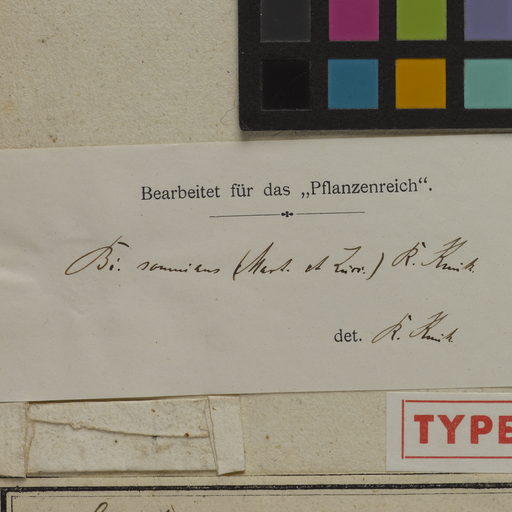 Bearbeitet für das „Pflanzenreich“.
Bi. somnians (Mart. et Zucc.) R. Knuth
det. R. Knuth
TYPE